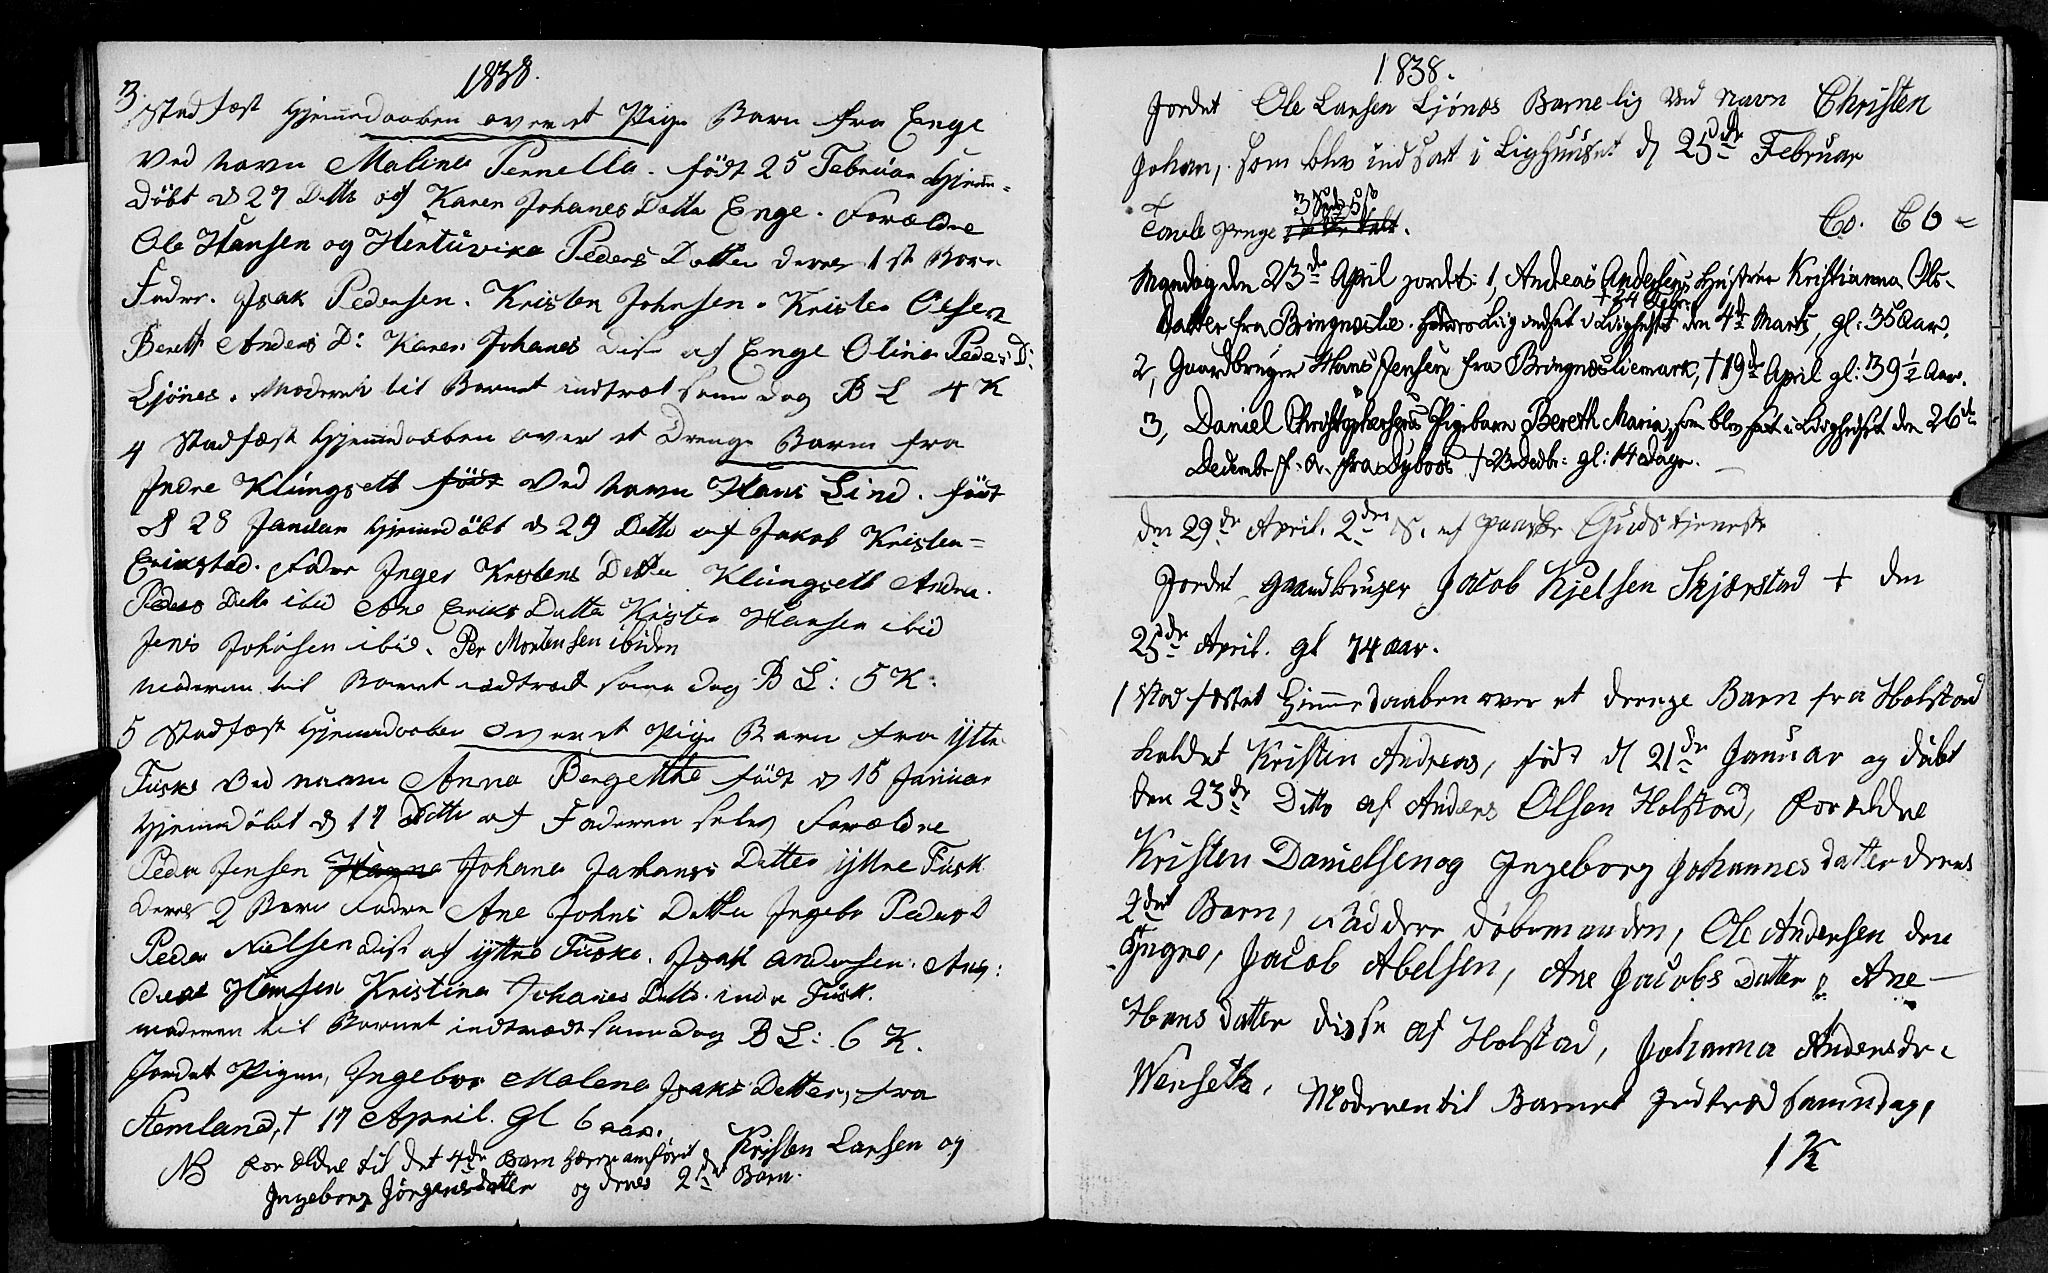 1838.
3. Stadfæst Hjemmedaaben over et Pige Barn fra Enge
ved navn Malina Pernella. født 25 Februar Hjem=
døbt d 27 Ditto af Karen Johanes Datter Enge. Forældre
Ole Hansen og Hertuvica Peders Datter deres 1st Barn
Fadre. Isak Pedersen. Kristen Johnsen. Kristen Olsen
Bereth Anders D: Karen Johanes Disse af Enge Olina Peders D:
Ljönes. Moderen til Barnet indtrat samme dag B L 4 K
4 Stadfæst Hjemmedaaben over et Drenge Barn fra
Indre Klungseth født ved navn Hans Lind. født
d 28 Januar Hjemmedøbt d 29 Ditto af Jakob Kristen=
Erikstad. Fadre Inger Kristens Datter Klungseth Andrea
Peders Datter ibid Ane Eriks Datter Kristen Hansen ibid
Jens Johnsen ibid. Per Mortensen ibiden
Moderen til Barnet indtræd samme dag B L: 5 K.
5 Stadfæst Hjemmedaaben over et Pige Barn fra ytre
Fuske ved navn Anna Bergethe født d 15 Januar
Hjemmedøbt d 17 Ditto af Faderen selv Forældre
Peder Jensen Johana Datter yttre Fusk
deres 2 Barn Fadre Ane Johns Datter Ingebor Peders D
Peder Nielsen disse af yttre Fuske. Isak Andersen.
Hemsen Kristina Johanes Datter indre Fusk.
moderen til Barnet indtrædt samme dag B L: 6 K.
Jordet Pigen, Ingebor Malena Isaks Datter, fra
Hemland, † 17 April. Gl 6 aar.
NB Forældre til det 4de Barn Herre anført Kristen Larsen og
Ingeborg Jörgensdatter og deres 2det Barn.
1838.
Jordet Ole Larsen Ljönes Barnelig ved Navn Christen
Johan, som blev indsat i Lighuuset d 25de Februar
Tavle Penge
Mandag den 23de April jordet: 1, Andreas Andersens Hustrue Kristianna Ols-
Datter fra Bringneslie. indsat i Liighuset den 4de Marts, gl: 35 Aar.
2, Gaardbruger Hans Jensen fra Bringneslimark, † 19de April gl: 39½ Aar.
3, Daniel Christophersens Pigebarn Bereth Maria, som blev sat i Liighuset den 26de
Decembr f. A. fra Dybos † 23 Decbr: gl: 14 dage.
den 29de April. 2den S. ef paaske Gudstjeneste
Jordet Gaardbruger Jacob Kjelsen Skjærstad † den
25de April. gl 74 aar.
1 Stadfæstet Hjemmedaaben over et drenge Barn fra Holstad
kaldet Kristen Andreas, født d 21de Januar og døbt
den 23de Ditto af Anders Olsen Holstad, Forældre
Kristen Danielsen og Ingeborg Johannes datter deres
2det Barn, Faddere döbemanden, Ole Andersen den
Yngre, Jacob Abelsen, Ane Jacobs Datter & Ane
Hans datter disse af Holstad, Johanna Andersdr.
Wenseth. Moderen til Barnet Indtræd samme dag,
1 K